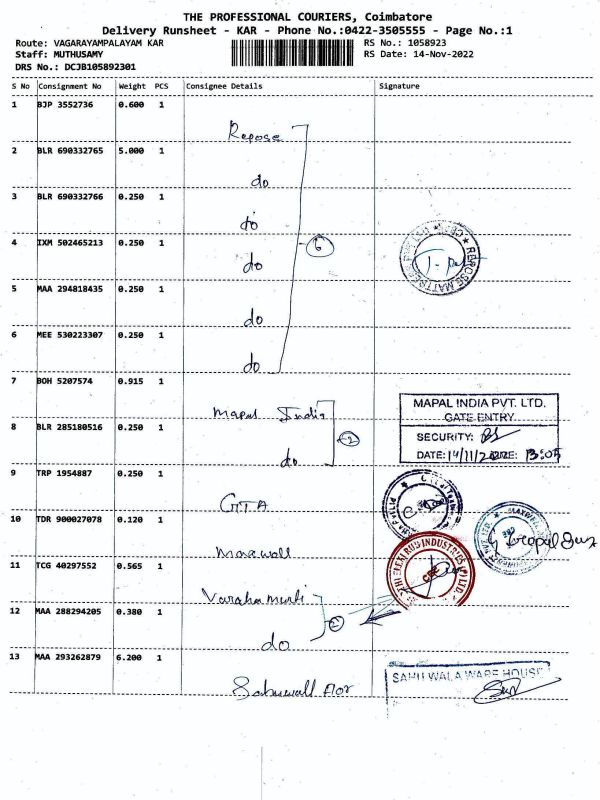 THE PROFESSIONAL COURIERS, Coimbatore
Delivery Runsheet - KAR - Phone No.:0422-3505555 - Page No.:1
Route: VAGARAYAMPALAYAM KAR
RS No.: 1058923
Staff: MUTHUSAMY
RS Date: 14-Nov-2022
DRS No.: DCJB105892301
S No Consignment No Weight PCS Consignee Details Signature
1 BJP 3552736 0.600 1
Repose
2 BLR 690332765 5.000 1
do
3 BLR 690332766 0.250 1
do
6
4 IXM 502465213 0.250 1
do
5 MAA 294818435 0.250 1
do
6 MEE 530223307 0.250 1
do
7 BOH 5207574 0.915 1
Mapal India
MAPAL INDIA PVT. LTD.
GATE ENTRY
8 BLR 285180516 0.250 1
2
SECURITY:
do
DATE: 14/11/2022 13:05
9 TRP 1954887 0.250 1
GTA
10 TDR 900027078 0.120 1
Maxwell
11 TCG 40297552 0.565 1
RUB INDUSTRIES
12 MAA 288294205 0.380 1
2
do
13 MAA 293262879 6.200 1
SAHUWALA WARE HOUSE